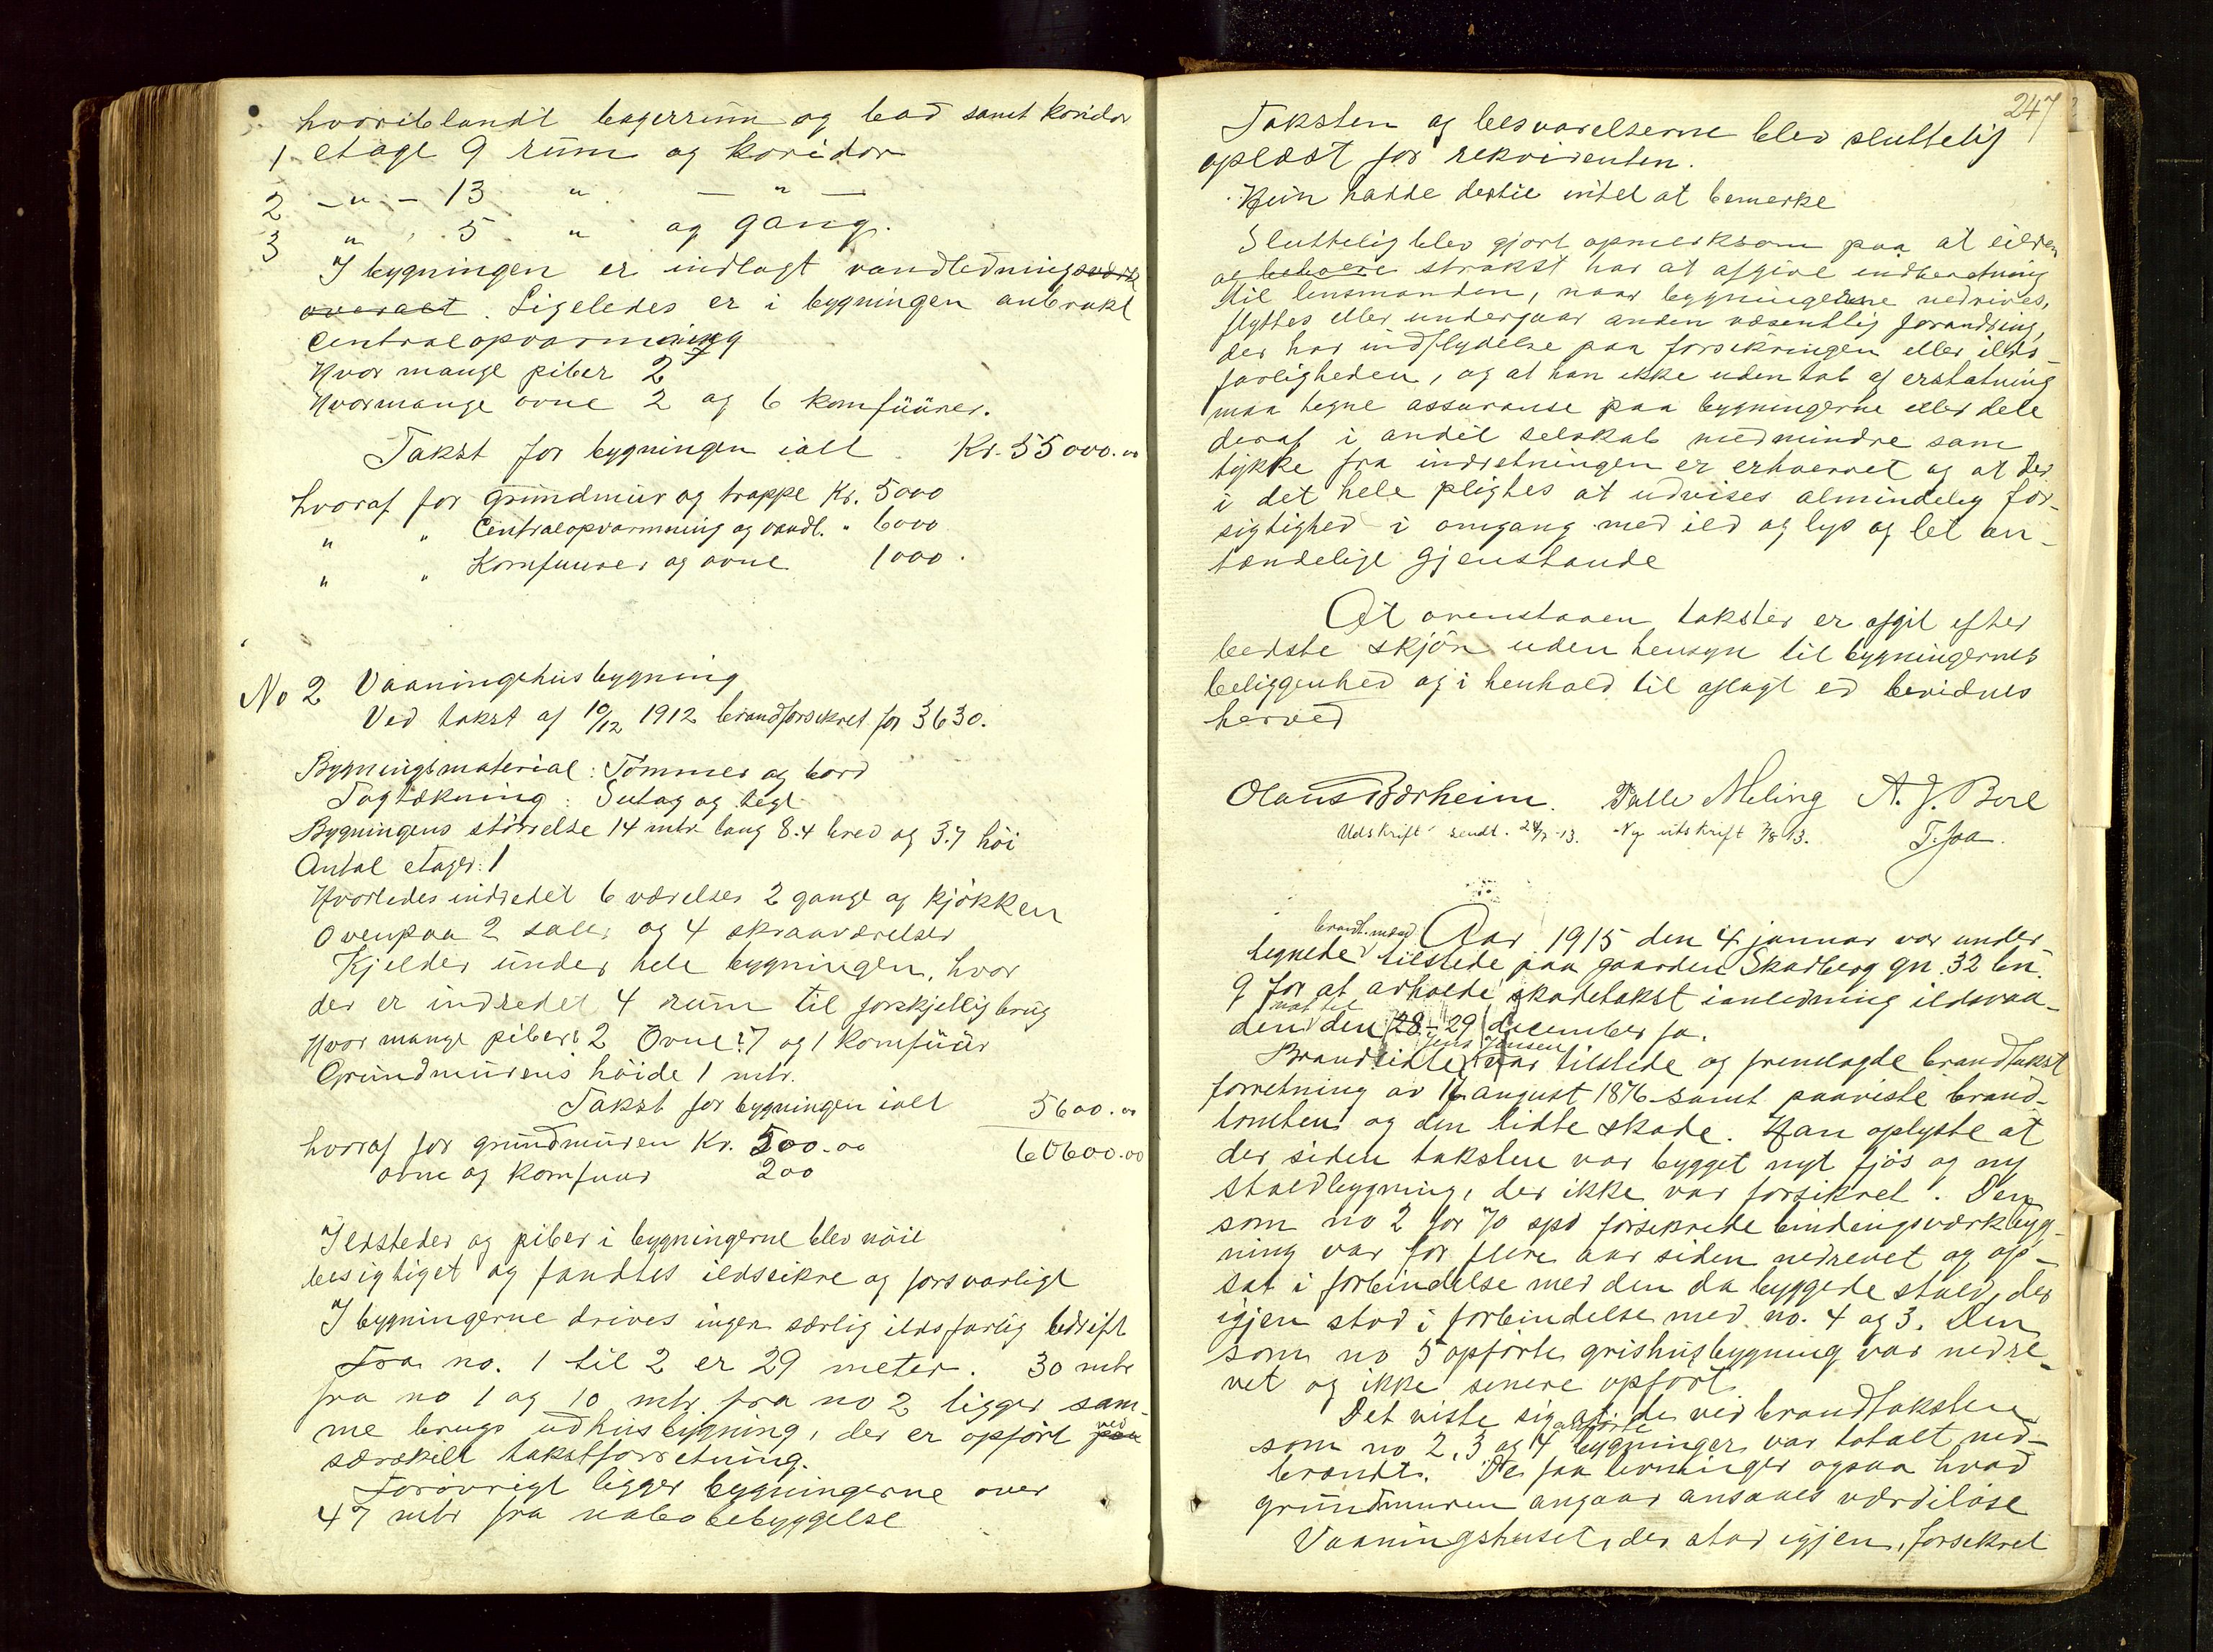 hvoriblandt bagerrum og bad samt koridor
1 etage 9 rum og koridor
2 -"- 13 " - " -
3 " 5 " og gang.
I bygningen er indlagt vandledning
overalt. Ligeledes er i bygningen anbrakt
Centralopvarmning
Hvor mange piber 2
Hvormange ovne 2 og 6 komfüürer.
Takst for bygningen ialt Kr. 55000.00
hvoraf for grundmur og trappe Kr. 5000
" " Centralopvarmning og vandl. " 6000
" " Komfuurer og ovne 1000.
No 2 Vaaningshusbygning
Ved takst af 10/12 1912 brandforsikret for 3630.
Bygningsmaterial: Tømmer og bord
Tagtækning: Sutag og tegl
Bygningens størrelse 14 mtr lang 8.4 bred og 3.7 høi
Antal etager: 1
Hvorledes indredet 6 værelser 2 gange og kjøkken
Ovenpaa 2 saler og 4 skraaværelser
Kjelder under hele bygningen, hvor
der er indredet 4 rum til forskjellig brug
Hvor mange piber: 2 Ovne: 7 og 1 komfüür
Grundmurens høide 1 mtr.
Takst for bygningen ialt 5600.00
hvoraf for grundmuren Kr. 500.00 60600.00
ovne og komfuur 200
Ildsteder og piber i bygningerne blev nøie
besigtiget og fandtes ildssikre og forsvarlige
I bygningerne drives ingen særlig ildsfarlig bedrift
Fra no. 1 til 2 er 29 meter. 30 mtr
fra no 1 og 10 mtr. fra no 2 ligger sam-
me brugs udhusbygning, der er opført paa ved
særskilt takstforretning.
Forøvrigt ligger bygningerne over
47 mtr fra nabobebyggelse
247
Taksten og besvarelserne blev sluttelig
oplæst for rekvirenten.
Hun hadde dertil intet at bemerke
Sluttelig blev gjort opmerksom paa at eieren
strakst har at afgive indberetning
til lensmanden, naar bygningerne nedrives,
flyttes eller undergaar anden væsentlig forandring,
der har indflydelse paa forsikringen eller ilds-
farligheden, og at han ikke uden tab af erstatning
maa tegne assuranse paa bygningerne eller dele
deraf i andet selskab medmindre sam
tykke fra indretningen er erhvervet og at der
i det hele plightes at udvises almindelig for-
sigtighed i omgang med ild og lys og let an-
tændelige gjenstande
At ovenstaaen takster er afgit efter
bedste skjøn uden hensyn til bygningernes
beliggenhed og i henhold til aflagt ed bevidnes
herved
Olaus Bærheim. Palle Meling A. J. Boie
Udskrift sendt. 24/7-13. Ny utskrift 7/8 13. T. Joa.
brandt.mænd
Aar 1915 den 4 januar var under-
tegnede tilstede paa gaarden Skadberg gn. 32 bn.
9 for at avholde skadetakst i anledning ildsvaa-
nat til
den den 28-29 december fa.
Jens Jensen
Brandlidte var tilstede og fremlagde brandtakst
forretning av 16 august 1876 samt paaviste brand-
tomten og den lidte skade. Han oplyste at
der siden taksten var bygget nyt fjøs og ny
staldbygning, der ikke var forsikret. Den
som no 2 for 70 spd forsikrede bindingsværkbyg-
ning var for flere aar siden nedrevet og op-
sat i forbindelse med den da byggede stald, der
igjen stod i forbindelse med no. 4 og 3. Den
som no 5 opførte grishusbygning var nedre-
vet og ikke senere opført.
Det viste sig at de ved brandtaksten
opførte
som no 2, 3 og 4 bygninger var totalt ned-
brændt. De faa levninger ogsaa hvad
grundmuren angaar ansaaes værdiløse
Vaaningshuset, der stod igjen, forsekret